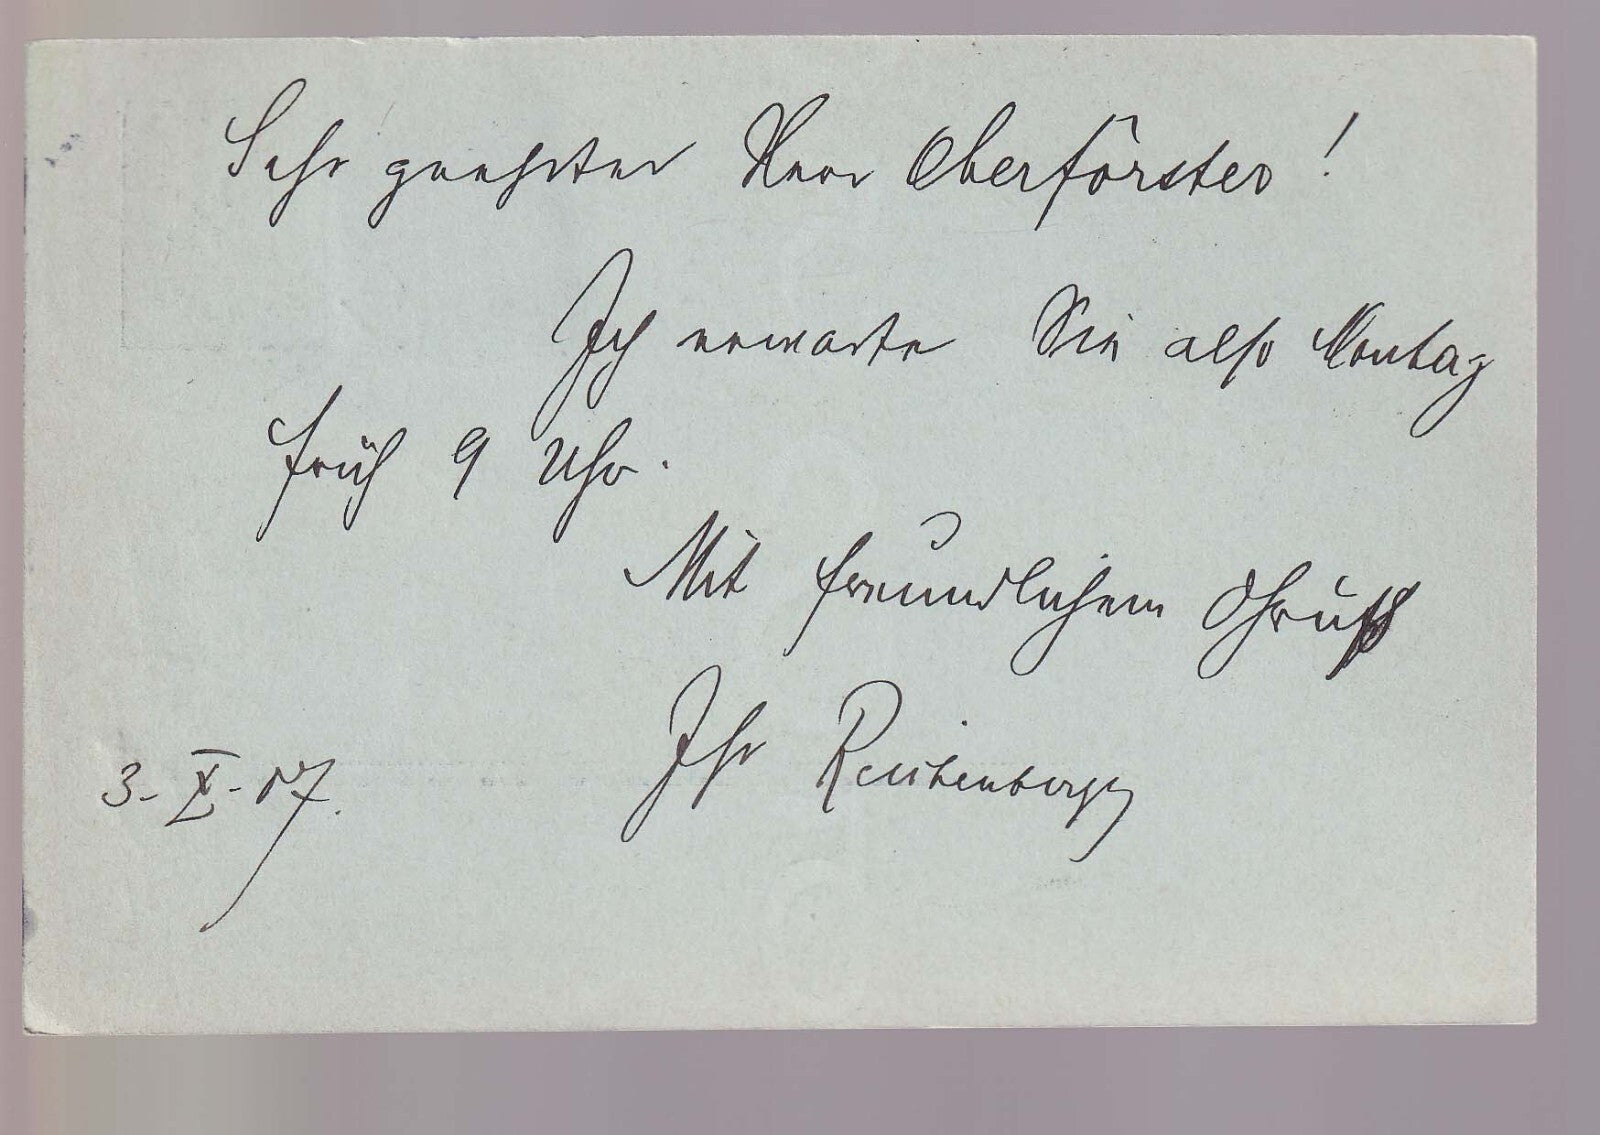 Sehr geehrter Herr Oberförster!
Ich erwarte Sie also Montag
früh 9 Uhr.
Mit freundlichem Gruß
Ihr
3-X-07.